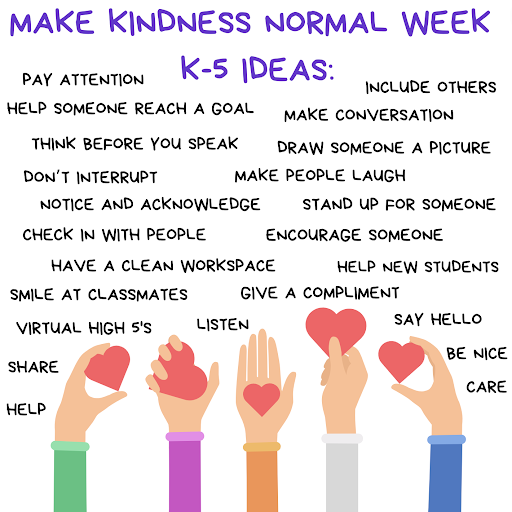 MAKE KINDNESS NORMAL WEEK
K-5 IDEAS:
PAY ATTENTION
INCLUDE OTHERS
HELP SOMEONE REACH A GOAL
MAKE CONVERSATION
THINK BEFORE YOU SPEAK
DRAW SOMEONE A PICTURE
DON'T INTERRUPT
MAKE PEOPLE LAUGH
NOTICE AND ACKNOWLEDGE
STAND UP FOR SOMEONE
CHECK IN WITH PEOPLE
ENCOURAGE SOMEONE
HAVE A CLEAN WORKSPACE
HELP NEW STUDENTS
SMILE AT CLASSMATES
GIVE A COMPLIMENT
VIRTUAL HIGH 5'S
LISTEN
SAY HELLO
SHARE
BE NICE
CARE
HELP